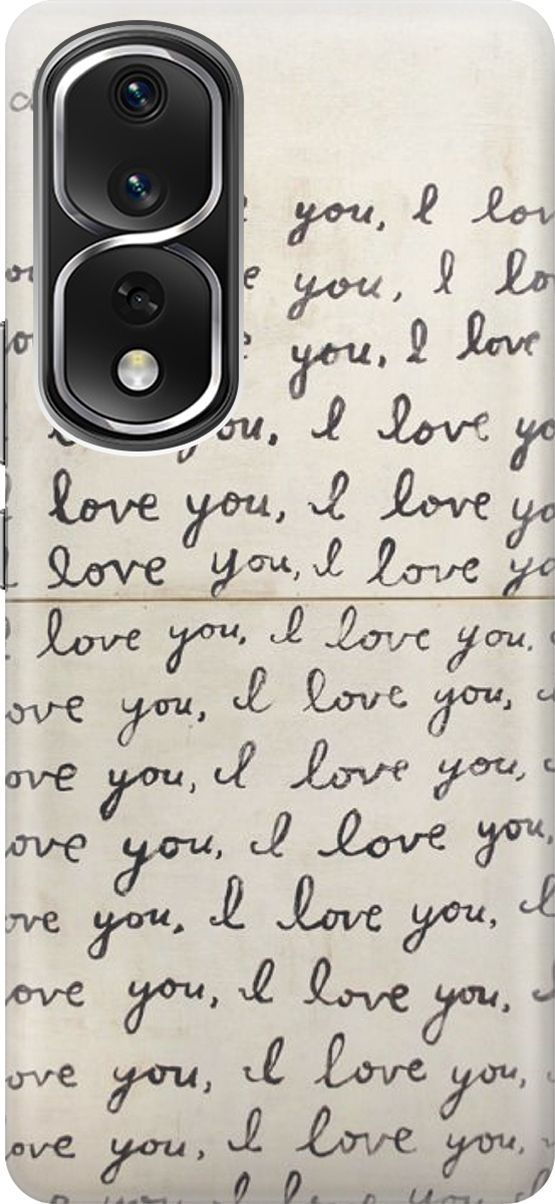 you, I lov
e you, I lo
you, I love
you, I love yo
love you, I love yo
I love you, I love yo
I love you, I love you,
ove you, I love you,
ove you, I love you,
ove you, I love you,
ove you, I love you, I
ove you, I love you,
ove you, I love you,
ove you, I love you,